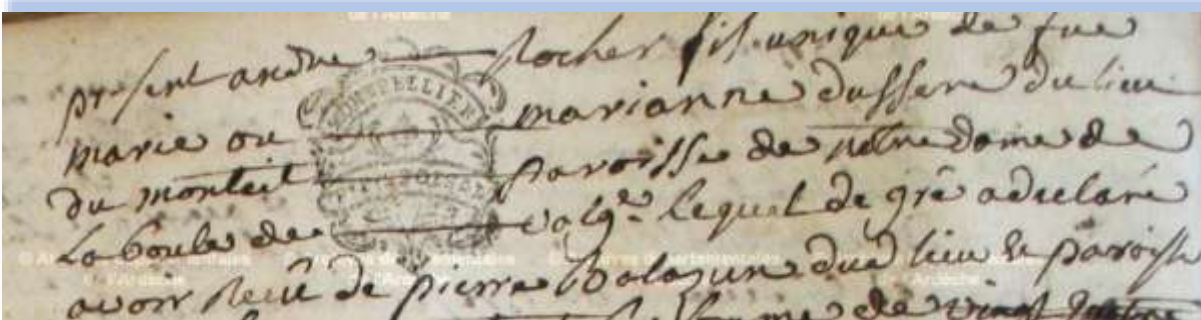 present andre Rocher fils unique de fue
marie ou marianne dussere du lieu
du monteil paroisse de notre dame de
La boule de valg.e lequel de gré a declaré
avoir receü de pierre balazun dud lieu & paroisse
la somme de vingt quatre
MONTPELLIER